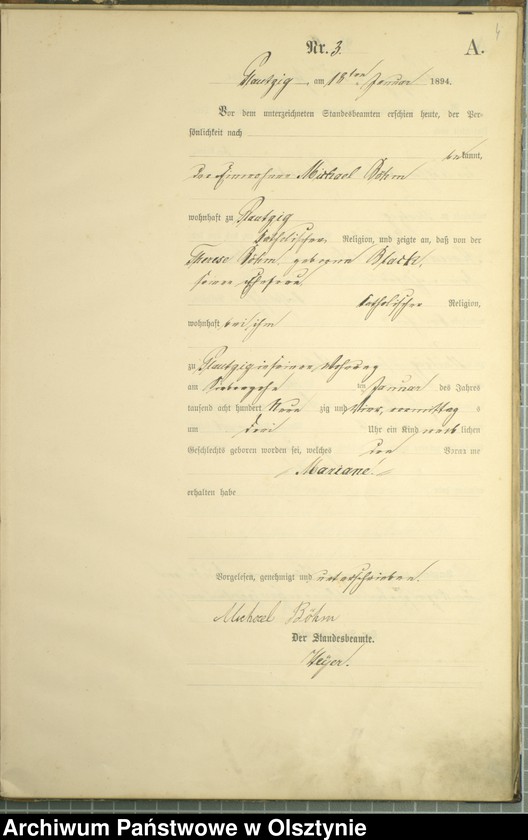 Nr. 3.
A.
Plautzig, am 18ten Januar 1894.
Vor dem unterzeichneten Standesbeamten erschien heute, der Per-
sönlichkeit nach
bekannt,
der Einwohner Michael Böhm
wohnhaft zu Plautzig
katholischer Religion, und zeigte an, daß von der
Therese Böhm geborene
seiner Ehefrau
katholischer Religion,
wohnhaft bei ihm
zu Plautzig in seiner Wohnung
am Januar des Jahres
tausend acht hundert Neun zig und Vier, vormittags
um drei Uhr ein Kind weiblichen
Geschlechts geboren worden sei, welches den Vorname
Mariane
erhalten habe
Vorgelesen, genehmigt und unterschrieben.
Michael Böhm
Der Standesbeamte.
Weyer.
Archiwum Państwowe w Olsztynie